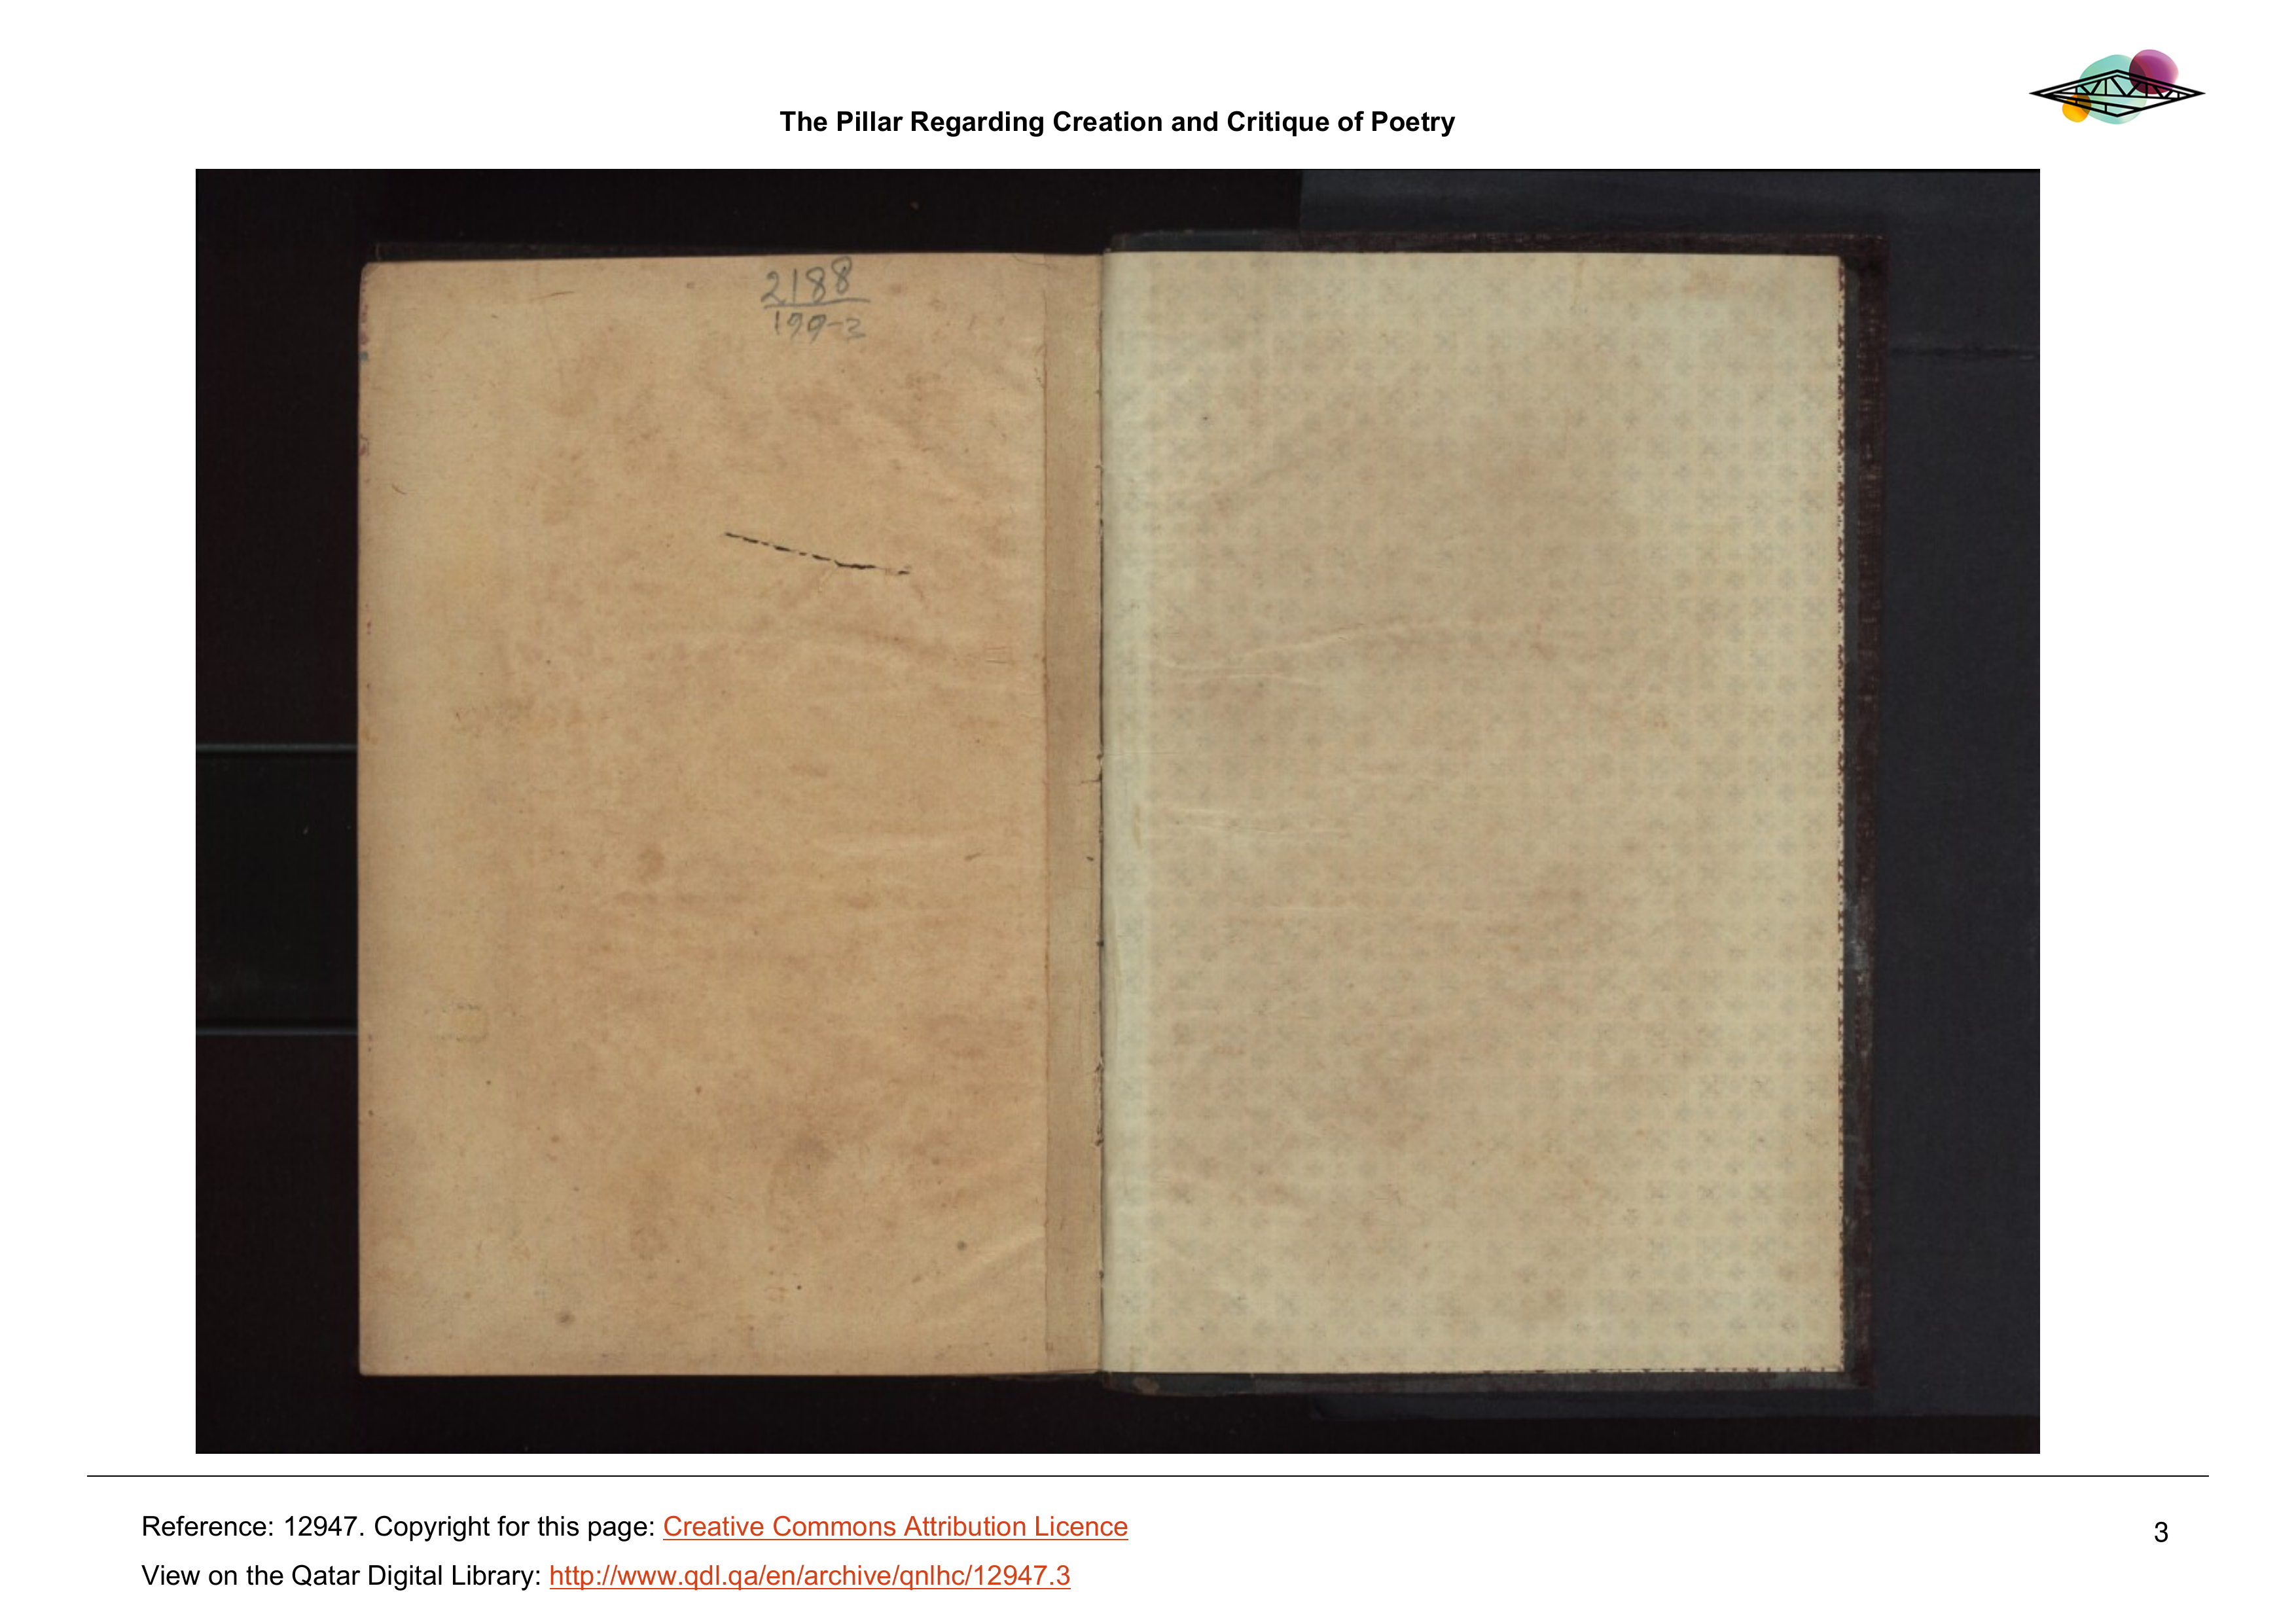 The Pillar Regarding Creation and Critique of Poetry
2188
Reference: 12947. Copyright for this page: Creative Commons Attribution Licence
3
View on the Qatar Digital Library: http://www.qdl.qa/en/archive/qnlhc/12947.3